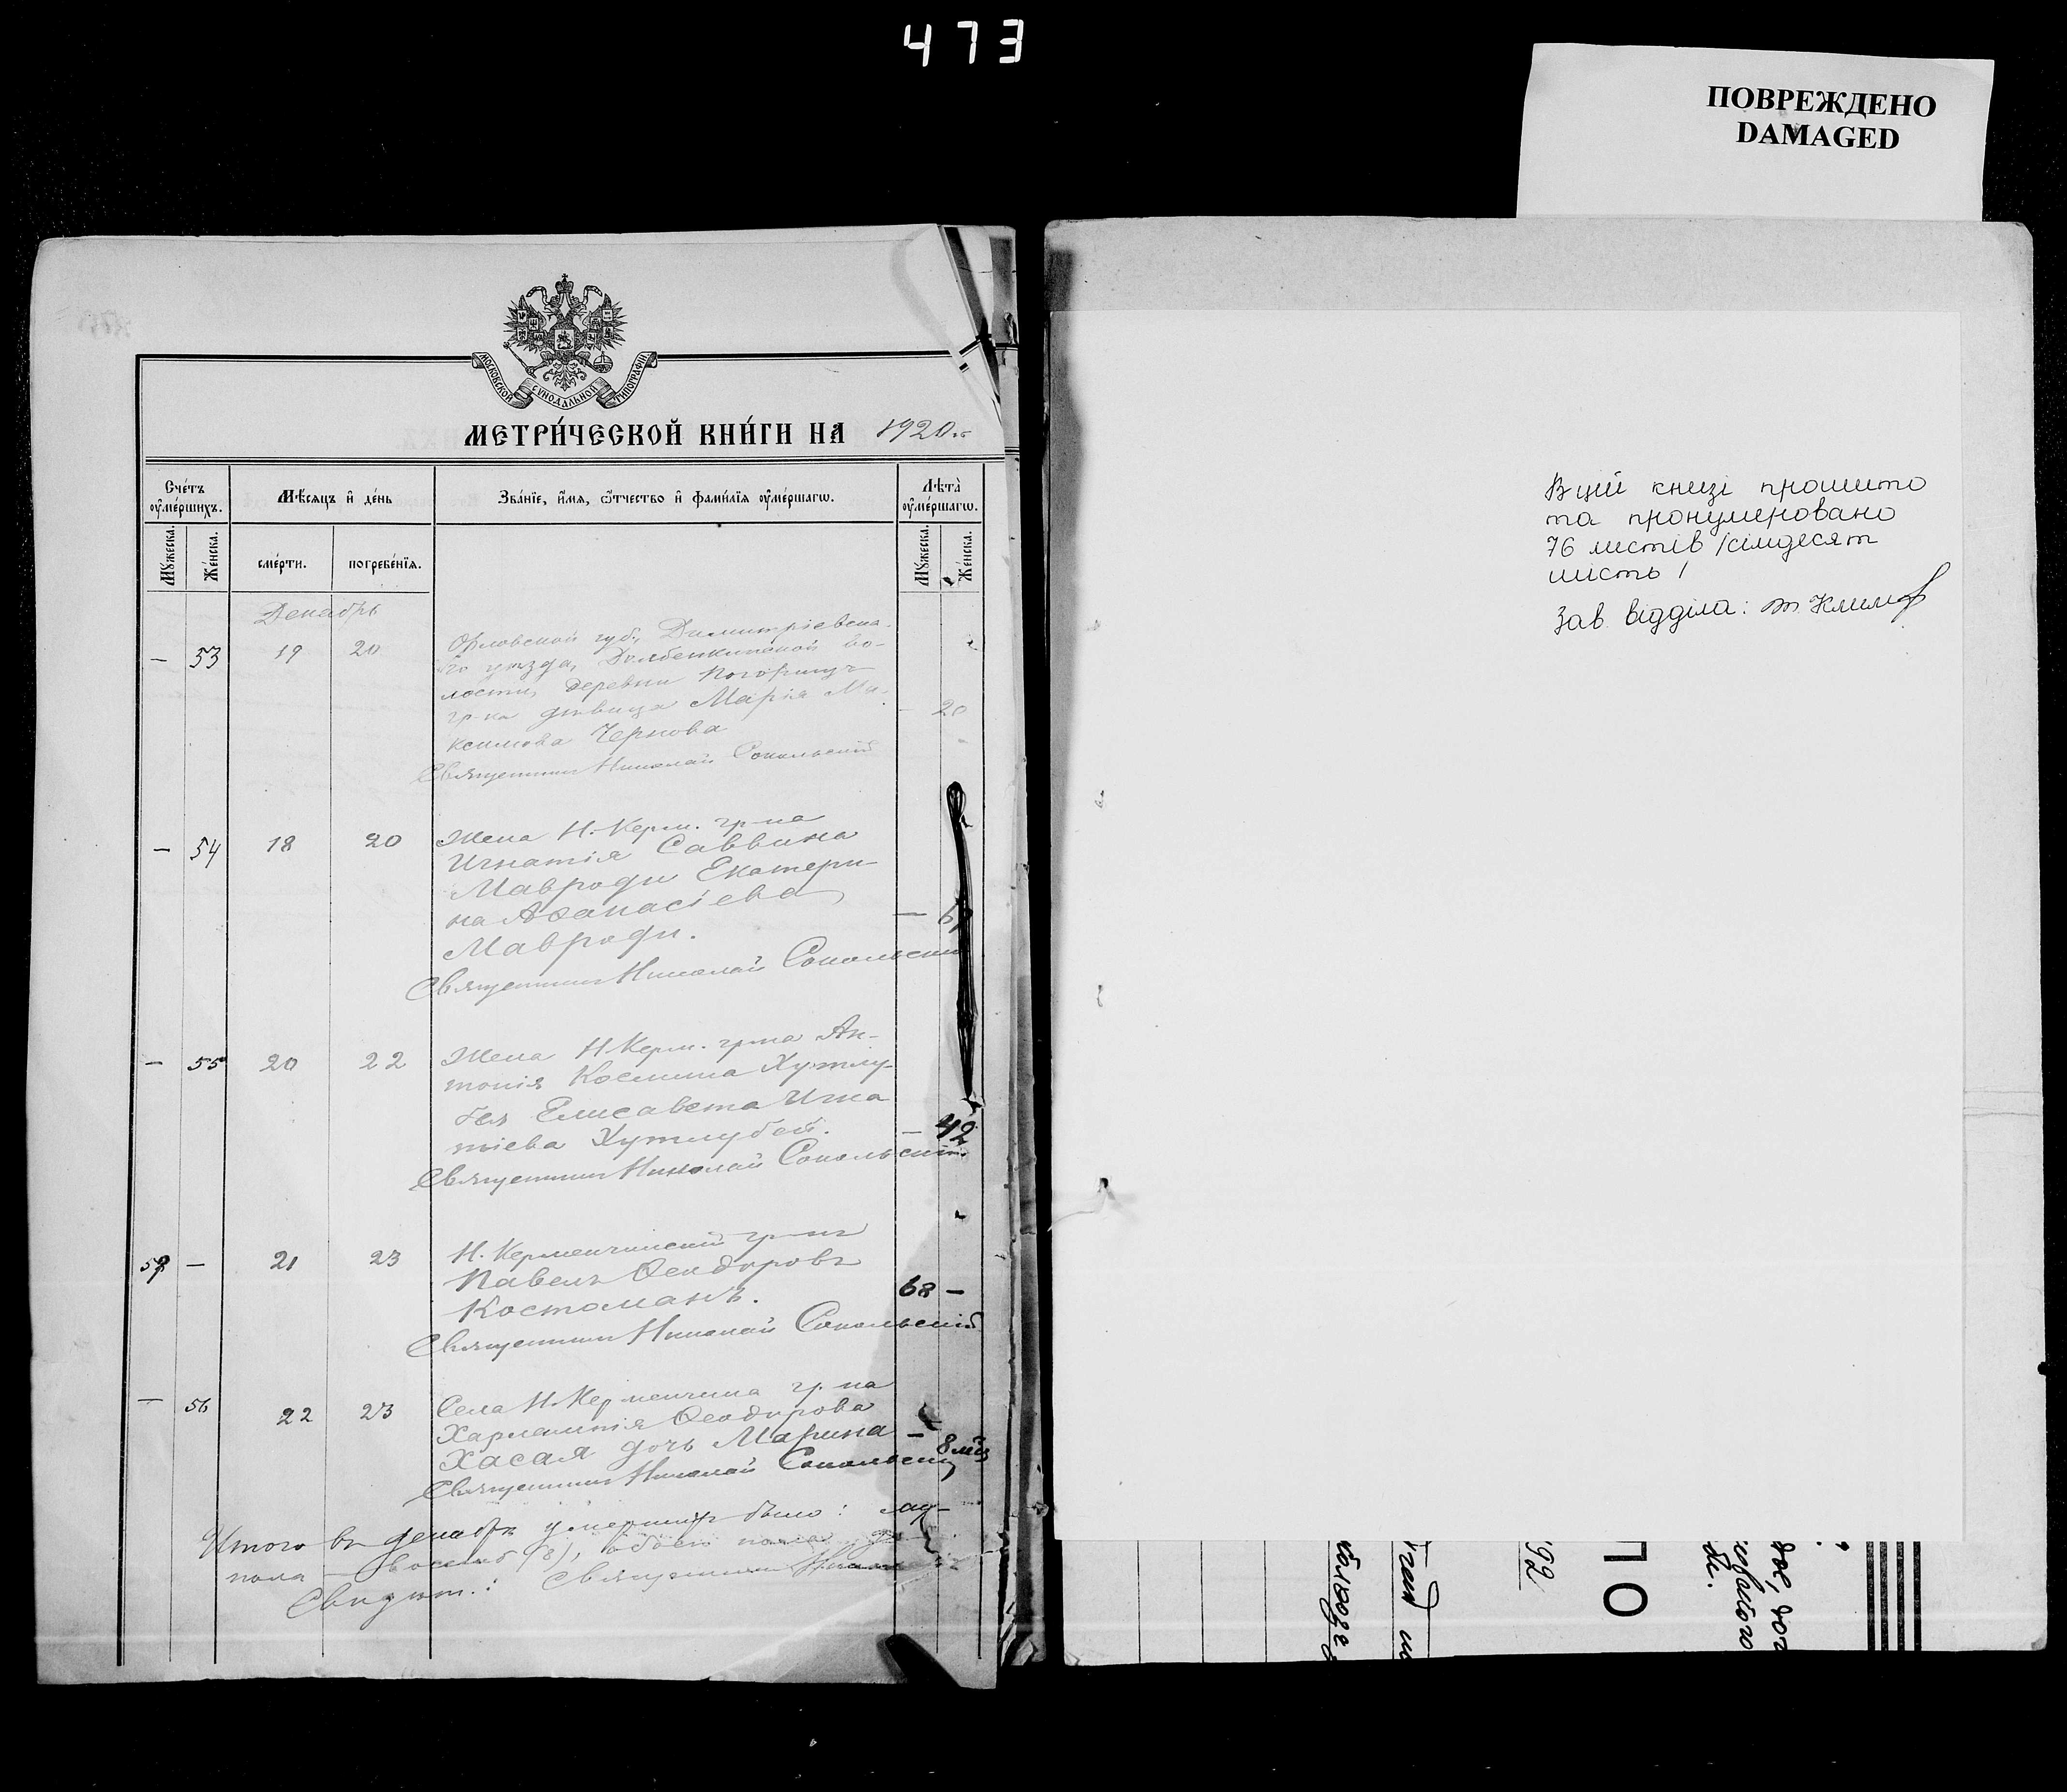 473
ПОВРЕЖДЕНО
DAMAGED
МОСКОВСКОЙ СѴНОДАЛЬНОЙ ТИПОГРАФІИ
МЕТРИ́ЧЕСКОЙ КНИ́ГИ НА 1920 г.
Сче́тъ оу҆ме́ршихъ.
Мѣ́сяцъ и҆ де́нь
Зва́нїе, и҆́мя, ѻ҆́тчество и҆ фами́лїя оу҆ме́ршагѡ.
Лѣта̀ оу҆ме́ршагѡ.
Мꙋ́жеска.
Же́нска.
сме́рти.
погребе́нїя.
Мꙋ́жеска.
Же́нска.
Декабрь
— 53 19 20
Орловской губ., Димитріевска-
го уѣзда, Долбенкинской во-
лости, деревни
гр-ка дѣвица Марія Ма-
ксимова Чернова — 20
Священникъ Николай Сокольскій
— 54 18 20
Жена Н.-Керм. гр-на
Игнатія Саввина
Мавроди Екатери-
на Аѳанасіева
Мавроди. —
Священникъ Николай Сокольскій
— 55 20 22
Жена Н.Керм. гр-на Ан-
тонія Космина Хутлу-
бея Елисавета Игна
тіева Хутлубей. — 42
Священникъ Николай Сокольскій
— 21 23
Н. Керменчикскій гр-нъ
Павелъ Ѳеодоровъ
Костоманъ. 68 —
Священникъ Николай Сокольскій
— 56 22 23
Села Н.-Керменчика гр-на
Харлампія Ѳеодорова
Хасая дочь Марина — 8 м-ц
Священникъ Николай Сокольскій
Итого въ декабрѣ умершихъ было: муж-
пола — восемь (8), обоего пола
Свидѣт.: Священникъ Никол
В цій книзі прошито
та пронумеровано
76 листів /сімдесят
шість/
Зав. відділа: Климов
92